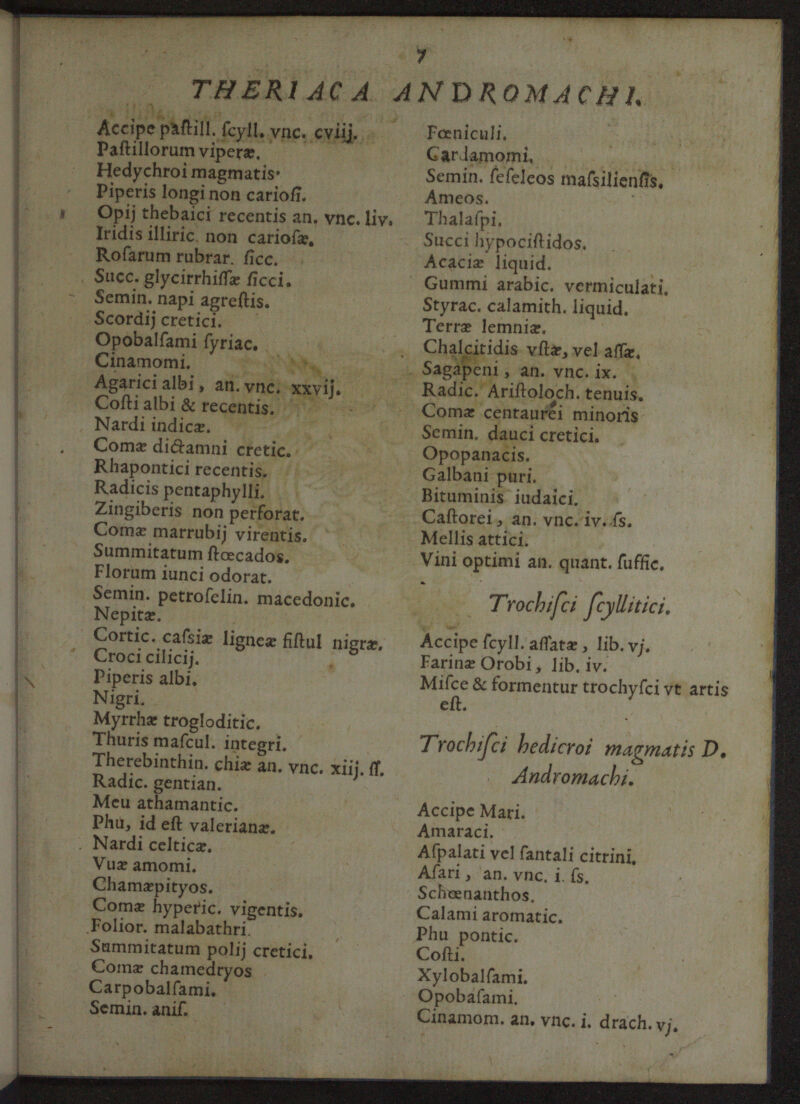 7
THERIACA ANDROMACHI.
Accipe paſtill. ſcyll. vnc. cviij.
Paſtillorum viperæ.
Hedychroi magmatis.
Piperis longi non carioſi.
Opij thebaici recentis an. vnc. liv.
Iridis illiric. non carioſæ.
Roſarum rubrar. ſicc.
Succ. glycirrhiſſæ ſicci.
Semin. napi agreſtis.
Scordij cretici.
Opobalſami ſyriac.
Cinamomi.
Agarici albi, an. vnc. xxvij.
Coſti albi & recentis.
Nardi indicæ.
Comæ dictamni cretic.
Rhapontici recentis.
Radicis pentaphylli.
Zingiberis non perforat.
Comæ marrubij virentis.
Summitatum ſtœcados.
Florum iunci odorat.
Semin. petroſelin. macedonic.
Nepitæ.
Cortic. caſsiæ ligneæ fiſtul nigræ.
Croci cilicij.
Piperis albi.
Nigri.
Myrrhæ trogloditic.
Thuris maſcul. integri.
Therebinthin. chiæ an. vnc. xiij. ſſ.
Radic. gentian.
Meu athamantic.
Phu, id eſt valerianæ.
Nardi celticæ.
Vuæ amomi.
Chamæpityos.
Comæ hyperic. vigentis.
Folior. malabathri.
Summitatum polij cretici.
Comæ chamedryos
Carpobalſami.
Semin. aniſ.
Fœniculi.
Cardamomi.
Semin. ſeſeleos maſsilienſis.
Ameos.
Thalaſpi.
Succi hypociſtidos.
Acaciæ liquid.
Gummi arabic. vermiculati.
Styrac. calamith. liquid.
Terræ lemniæ.
Chalcitidis vſtæ, vel aſſæ.
Sagapeni, an. vnc. ix.
Radic. Ariſtoloch. tenuis.
Comæ centaurei minoris
Semin. dauci cretici.
Opopanacis.
Galbani puri.
Bituminis iudaici.
Caſtorei, an. vnc. iv. ſs.
Mellis attici.
Vini optimi an. quant. ſuffic.
Trochiſci ſcyllitici.
Accipe ſcyll. aſſatæ, lib. vj.
Farinæ Orobi, lib. iv.
Miſce & formentur trochyſci vt artis
eſt.
Trochiſci hedicroi magmatis D.
Andromachi.
Accipe Mari.
Amaraci.
Aſpalati vel ſantali citrini.
Aſari, an. vnc. i. ſs.
Schœnanthos.
Calami aromatic.
Phu pontic.
Coſti.
Xylobalſami.
Opobaſami.
Cinamom. an. vnc. i. drach. vj.